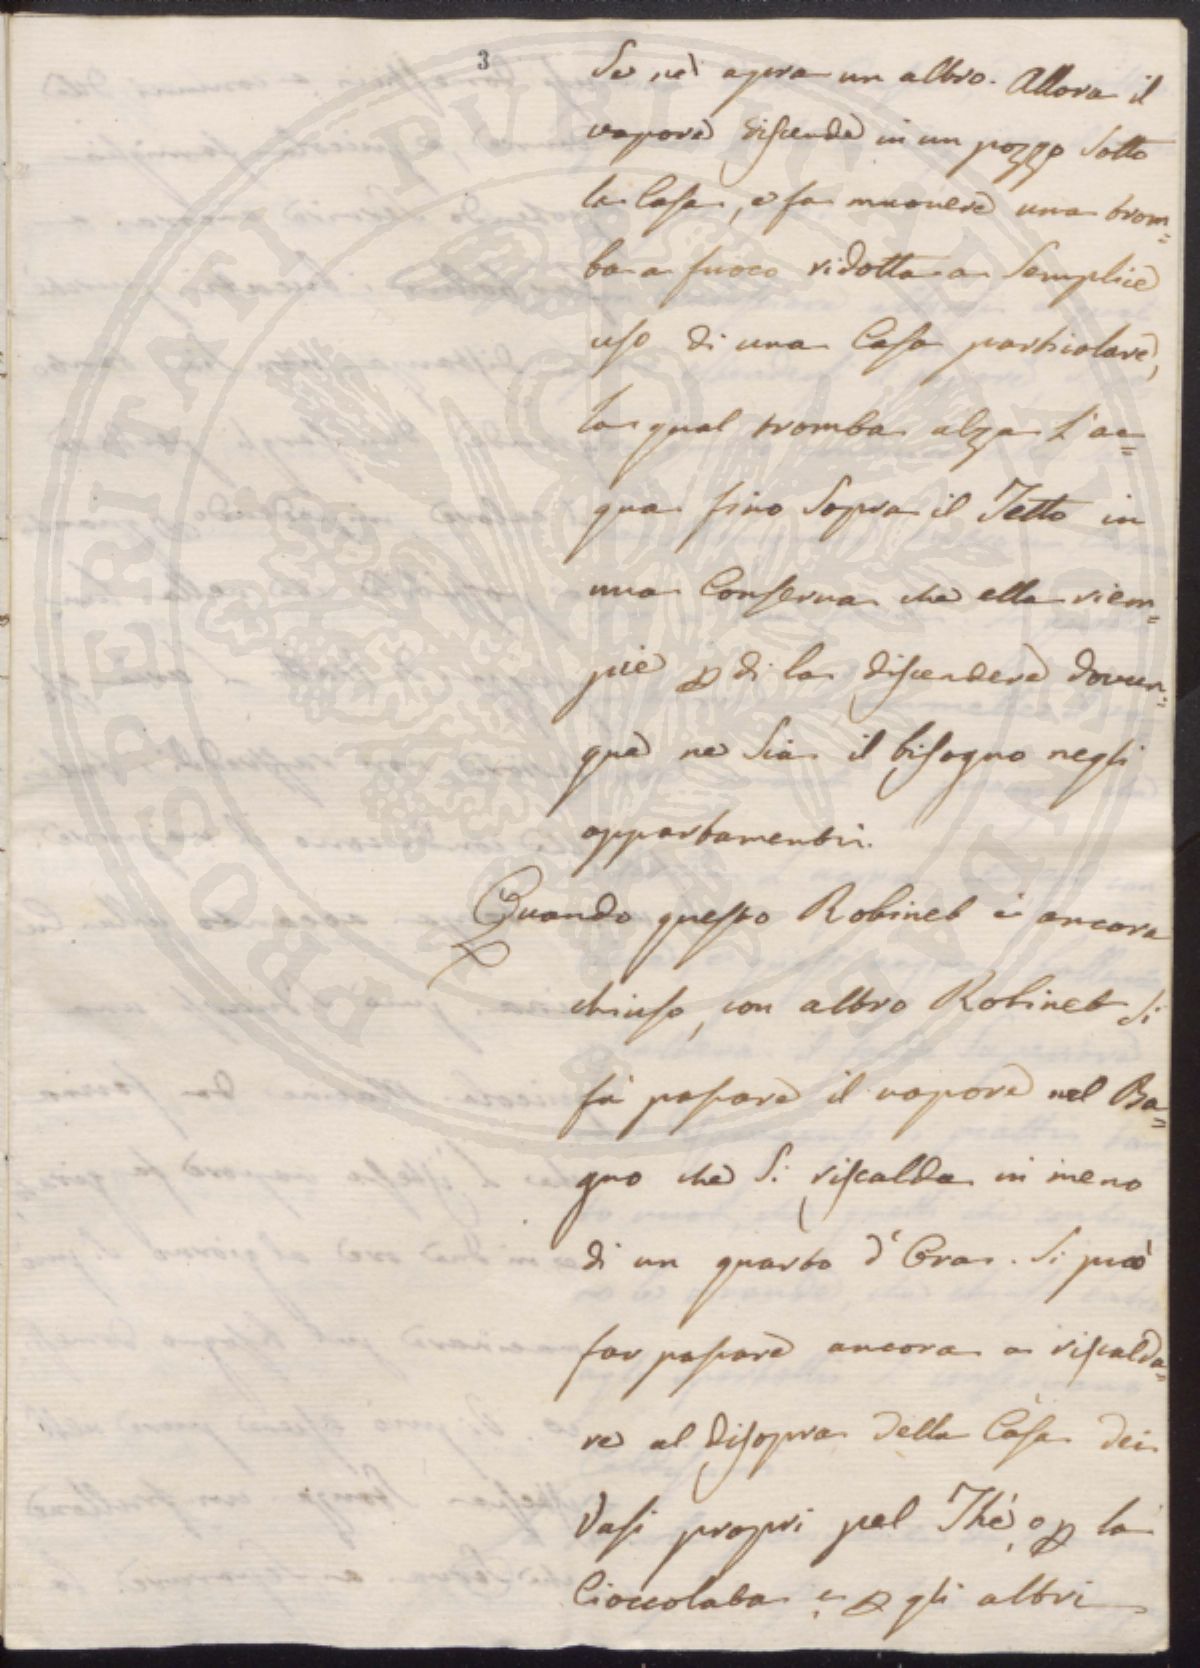 3
Se ne apra un altro. Allora il
vapore discende in un pozzo sotto
la Casa, e fa muovere una trom=
ba a fuoco ridotta a semplice
uso di una Casa particolare,
la qual tromba alza l'ac=
qua fino sopra il Tetto in
una Conserva che ella riem=
pie p di la discendere dovun=
que ne sia il bisogno negli
appartamenti.
Quando questo Robinet è ancora
chiuso, con altro Robinet si
fà passare il vapore nel Ba=
gno che si riscalda in meno
di un quarto d'Ora. Si può
far passare ancora a riscalda=
re al disopra della Casa dei
Vasi propri pel Thè, o p la
Cioccolata e p gli altri
PROSPERITATI PUBLICAE AUGENDAE